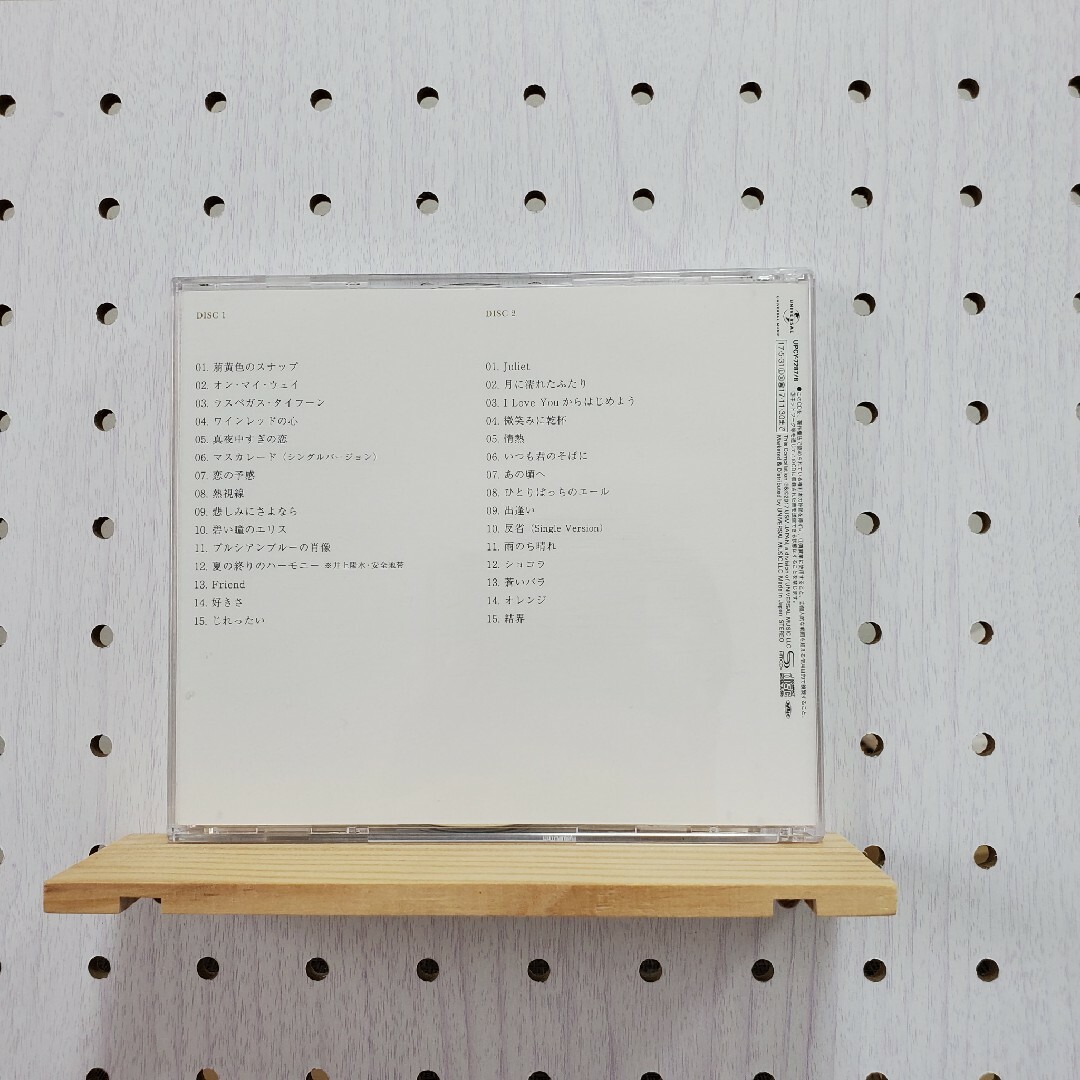 DISC 1
01. 萠黄色のスナップ
02. オン・マイ・ウェイ
03. ラスベガス・タイフーン
04. ワインレッドの心
05. 真夜中すぎの恋
06. マスカレード (シングルバージョン)
07. 恋の予感
08. 熱視線
09. 悲しみにさよなら
10. 碧い瞳のエリス
11. プルシアンブルーの肖像
12. 夏の終りのハーモニー ※井上陽水・安全地帯
13. Friend
14. 好きさ
15. じれったい
DISC 2
01. Juliet
02. 月に濡れたふたり
03. I Love You からはじめよう
04. 微笑みに乾杯
05. 情熱
06. いつも君のそばに
07. あの頃へ
08. ひとりぼっちのエール
09. 出逢い
10. 反省 (Single Version)
11. 雨のち晴れ
12. ショコラ
13. 蒼いバラ
14. オレンジ
15. 結界
UNIVERSAL
UNIVERSAL MUSIC
UPCY-7287/8
This Compilation ℗&©2017 USM JAPAN, a division of UNIVERSAL MUSIC LLC
Marketed & Distributed by UNIVERSAL MUSIC LLC Made in Japan STEREO